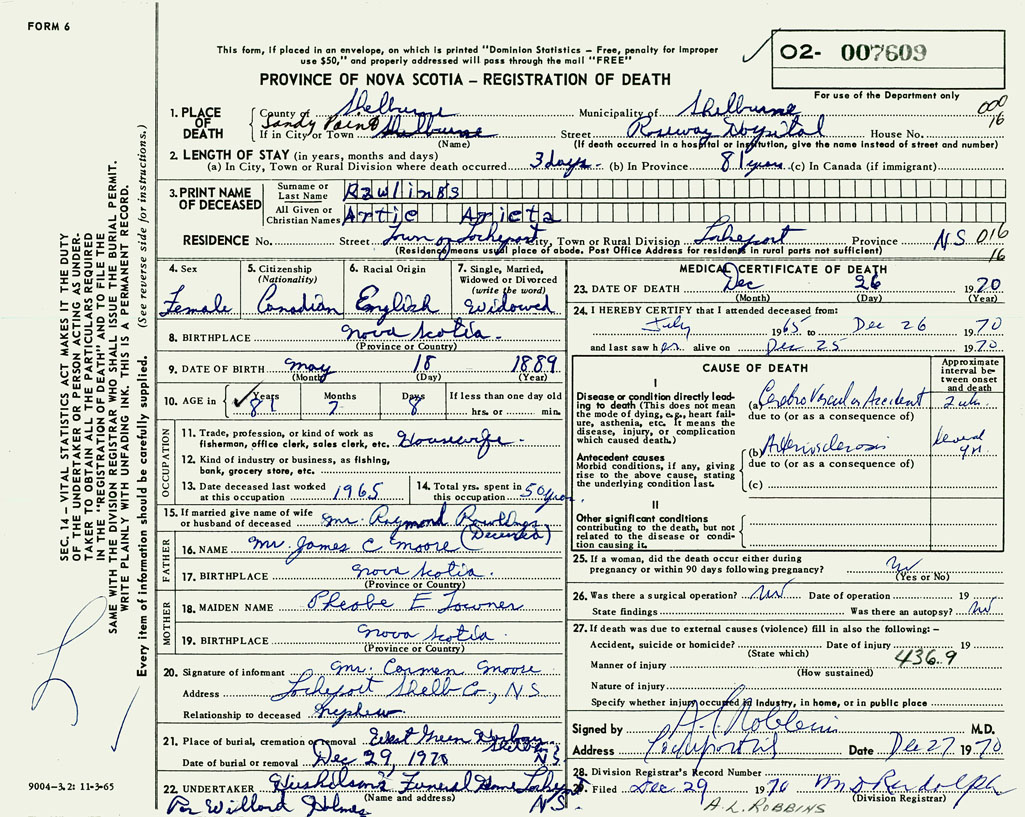 FORM 6
This form, if placed in an envelope, on which is printed "Dominion Statistics – Free, penalty for improper
use $50," and properly addressed will pass through the mail "FREE"
02- 007609
PROVINCE OF NOVA SCOTIA – REGISTRATION OF DEATH
For use of the Department only
1. PLACE OF DEATH
County of Shelburne Municipality of Shelburne 000
16
Sandy Point
If in City or Town Shelburne Street Roseway Hospital House No.
(Name) (If death occurred in a hospital or institution, give the name instead of street and number)
2. LENGTH OF STAY (in years, months and days)
(a) In City, Town or Rural Division where death occurred 3 days (b) In Province 81 years (c) In Canada (if immigrant)
3. PRINT NAME OF DECEASED
Surname or Last Name Rawlings
All Given or Christian Names Artie Arieta
RESIDENCE No. Street Town of Lockeport City, Town or Rural Division Lockeport Province N.S. 016
(Residence means usual place of abode. Post Office Address for residents in rural parts not sufficient) 16
4. Sex
Female
5. Citizenship
(Nationality)
Canadian
6. Racial Origin
English
7. Single, Married,
Widowed or Divorced
(write the word)
Widowed
8. BIRTHPLACE Nova Scotia
(Province or Country)
9. DATE OF BIRTH May 18 1889
(Month) (Day) (Year)
10. AGE in Years Months Days If less than one day old
81 7 8 hrs. or min.
OCCUPATION
11. Trade, profession, or kind of work as
fisherman, office clerk, sales clerk, etc. Housewife
12. Kind of industry or business, as fishing,
bank, grocery store, etc.
13. Date deceased last worked
at this occupation 1965
14. Total yrs. spent in
this occupation 50 years
15. If married give name of wife
or husband of deceased Mr. Raymond Rawlings
(Deceased)
FATHER
16. NAME Mr. James C Moore
17. BIRTHPLACE Nova Scotia
(Province or Country)
MOTHER
18. MAIDEN NAME Pheobe E Towner
19. BIRTHPLACE Nova Scotia
(Province or Country)
20. Signature of informant Mr. Carmen Moore
Address Lockeport Shelb Co., N S
Relationship to deceased Nephew
21. Place of burial, cremation or removal East Green Harbour
Date of burial or removal Dec 29, 1970 N.S.
22. UNDERTAKER Huskilson's Funeral Home Lockeport
(Name and address) N.S.
Per Willard Holmes
MEDICAL CERTIFICATE OF DEATH
23. DATE OF DEATH Dec 26 1970
(Month) (Day) (Year)
24. I HEREBY CERTIFY that I attended deceased from:
July 1965 to Dec 26 1970
and last saw her alive on Dec 25 1970
CAUSE OF DEATH
Approximate
interval be-
tween onset
and death
I
Disease or condition directly lead-
ing to death (This does not mean
the mode of dying, e.g., heart fail-
ure, asthenia, etc. It means the
disease, injury, or complication
which caused death.)
(a) Cerebro Vascular Accident
due to (or as a consequence of)
Antecedent causes
Morbid conditions, if any, giving
rise to the above cause, stating
the underlying condition last.
(b) Arteriosclerosis several yr
due to (or as a consequence of)
(c)
II
Other significant conditions
contributing to the death, but not
related to the disease or condi-
tion causing it.
25. If a woman, did the death occur either during
pregnancy or within 90 days following pregnancy? No
(Yes or No)
26. Was there a surgical operation? No Date of operation 19
State findings Was there an autopsy? No
27. If death was due to external causes (violence) fill in also the following: –
Accident, suicide or homicide? Date of injury 19
(State which) 436.9
Manner of injury
(How sustained)
Nature of injury
Specify whether injury occurred in industry, in home, or in public place
Signed by A L Robbins M.D.
Address Lockeport NS Date Dec 27 1970
28. Division Registrar's Record Number
Filed Dec 29 1970 M D Randolph
(Division Registrar)
A.L. ROBBINS
SEC. 14 – VITAL STATISTICS ACT MAKES IT THE DUTY
OF THE UNDERTAKER OR PERSON ACTING AS UNDER-
TAKER TO OBTAIN ALL THE PARTICULARS REQUIRED
IN THE "REGISTRATION OF DEATH" AND TO FILE THE
SAME WITH THE DIVISION REGISTRAR WHO SHALL ISSUE THE BURIAL PERMIT.
WRITE PLAINLY WITH UNFADING INK. THIS IS A PERMANENT RECORD.
Every item of information should be carefully supplied. (See reverse side for instructions.)
9004-3.2: 11-3-65